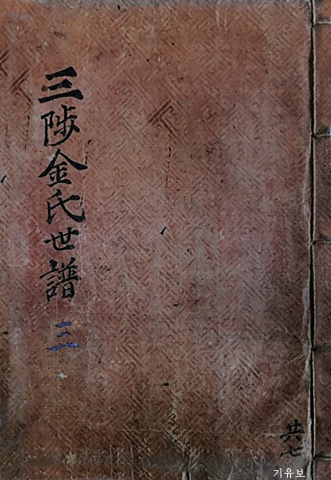 三陟金氏世譜
二
共七
기유보